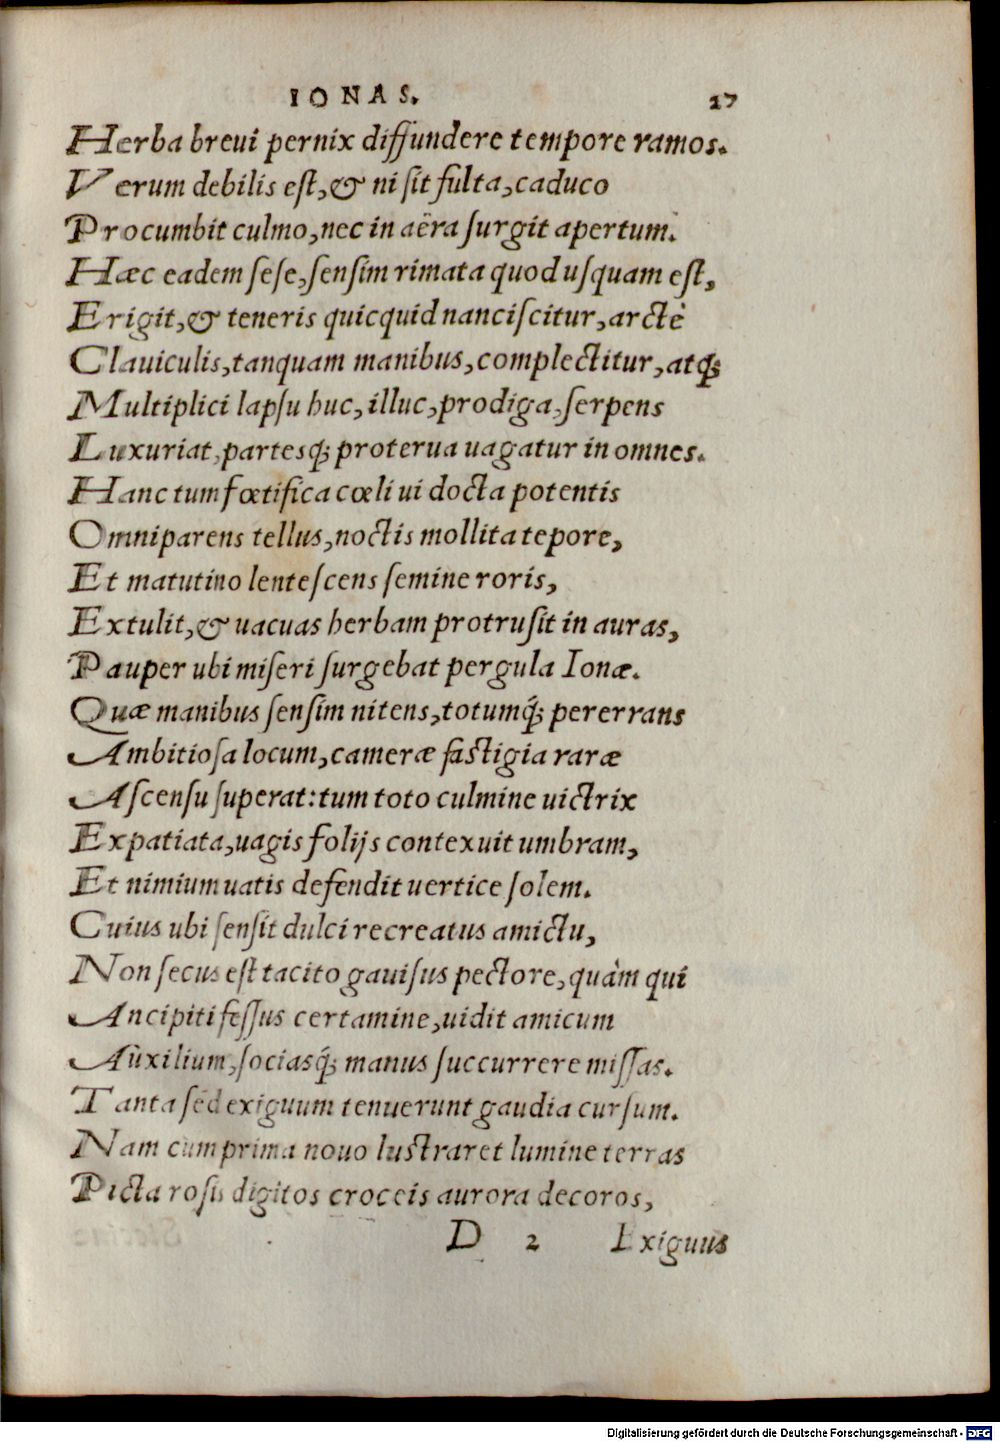 IONAS. 27
Herba breui pernix diffundere tempore ramos.
Verum debilis est, & ni sit fulta, caduco
Procumbit culmo, nec in aëra surgit apertum.
Hæc eadem sese, sensim rimata quod usquam est,
Erigit, & teneris quicquid nanciscitur, arctè
Clauiculis, tanquam manibus, complectitur, atq;
Multiplici lapsu huc, illuc, prodiga, serpens
Luxuriat, partesq; proterua uagatur in omnes.
Hanc tum fœtifica cœli ui docta potentis
Omniparens tellus, noctis mollita tepore,
Et matutino lentescens semine roris,
Extulit, & uacuas herbam protrusit in auras,
Pauper ubi miseri surgebat pergula Ionæ.
Quæ manibus sensim nitens, totumq́; pererrans
Ambitiosa locum, cameræ fastigia raræ
Ascensu superat: tum toto culmine uictrix
Expatiata, uagis folijs contexuit umbram,
Et nimium uatis defendit uertice solem.
Cuius ubi sensit dulci recreatus amictu,
Non secus est tacito gauisus pectore, quàm qui
Ancipiti fessus certamine, uidit amicum
Auxilium, sociasq́; manus succurrere missas.
Tanta sed exiguum tenuerunt gaudia cursum.
Nam cum prima nouo lustraret lumine terras
Picta rosis digitos croceis aurora decoros,
D 2 Exiguus
Digitalisierung gefördert durch die Deutsche Forschungsgemeinschaft - DFG